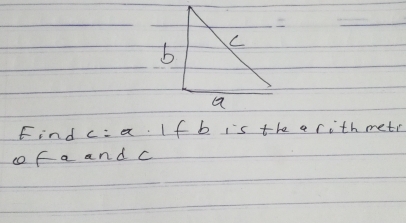 b
c
a
Find c:a. If b is the arithmetc
of a and c